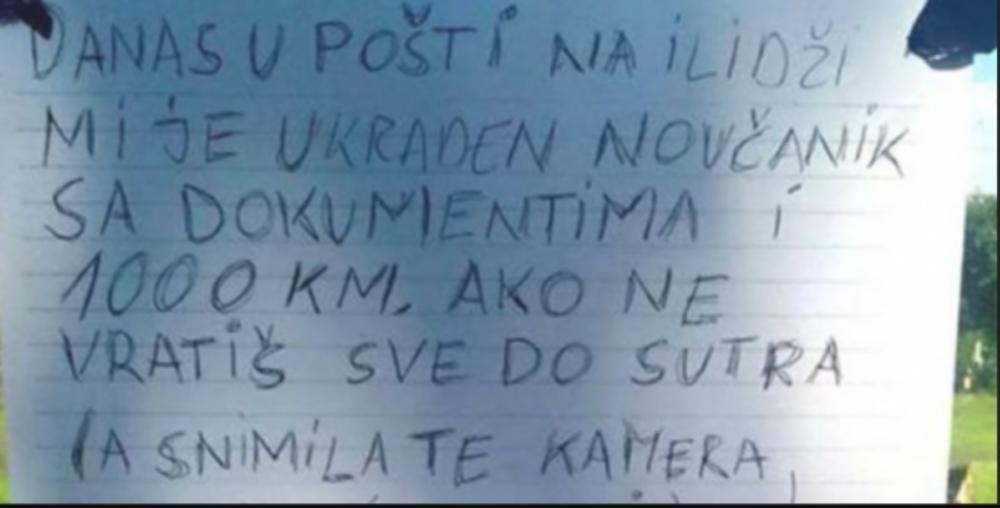 DANAS U POŠTI NA ILIDŽI
MI JE UKRADEN NOVČANIK
SA DOKUMENTIMA I
1000 KM. AKO NE
VRATIŠ SVE DO SUTRA
(A SNIMILA TE KAMERA,